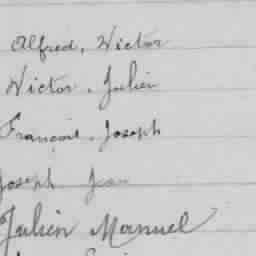 Alfred, Victor
Victor, Julien
François, Joseph
Joseph Jean
Julien Manuel